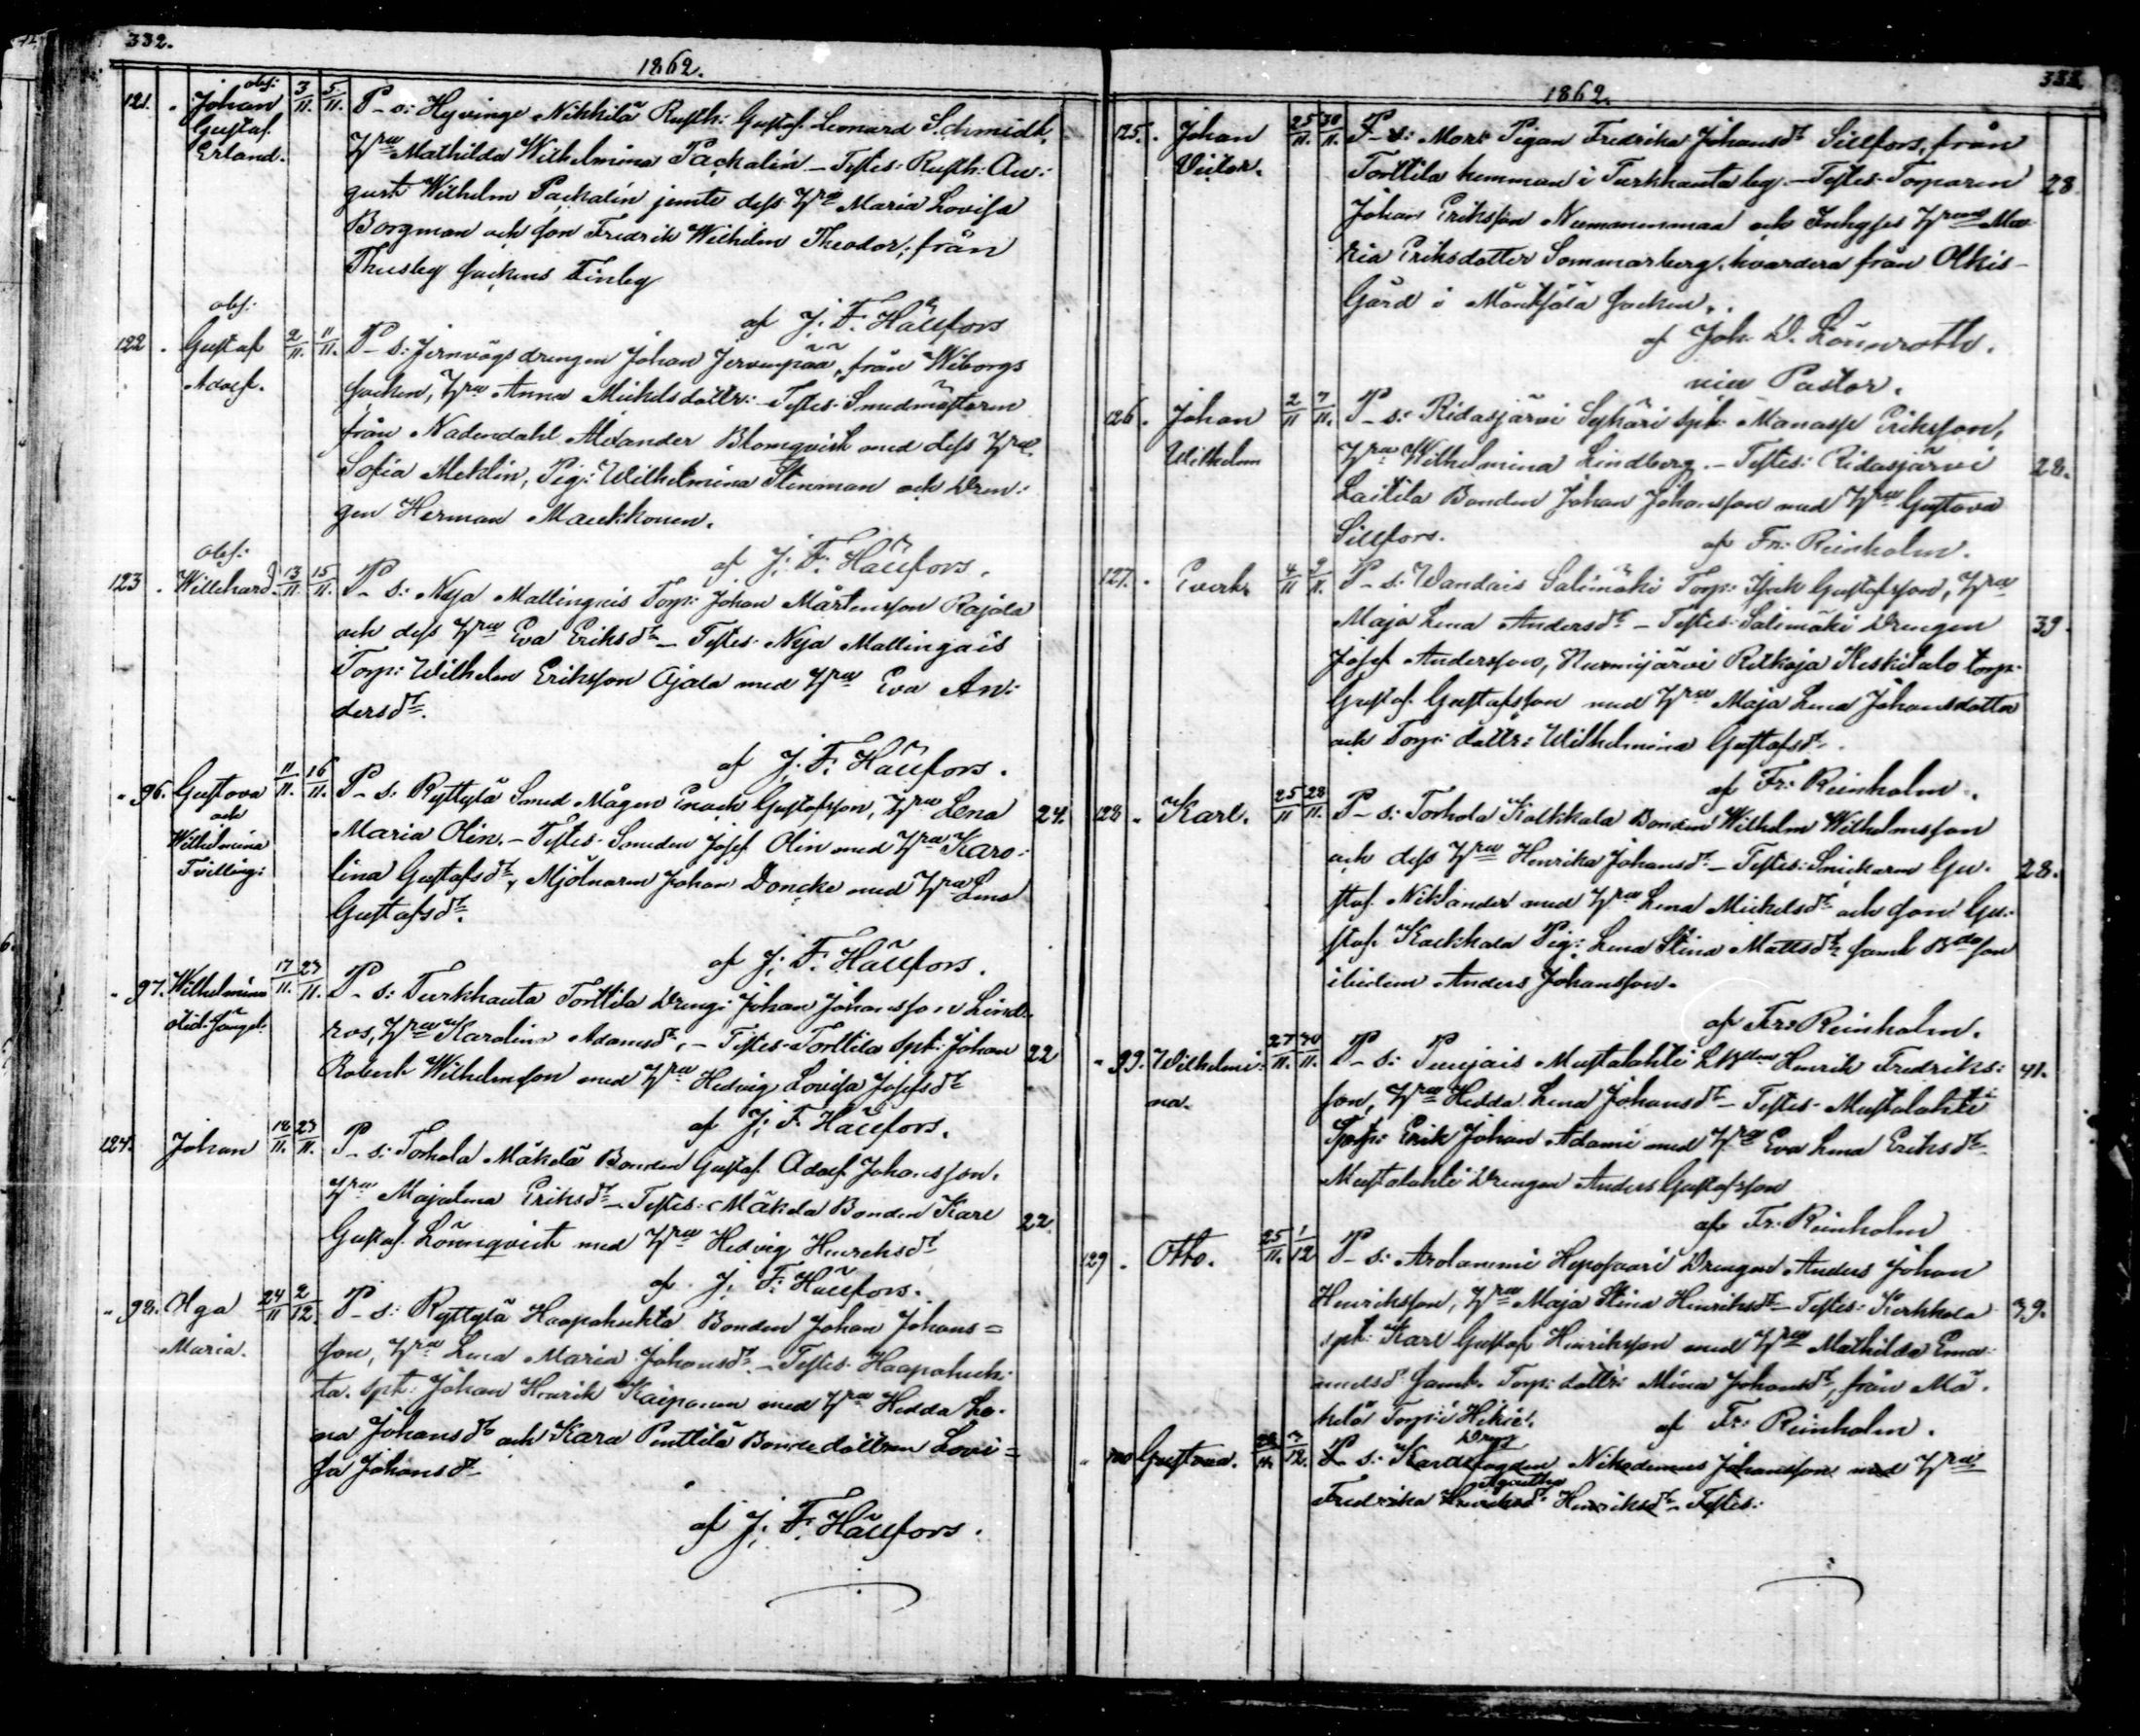 332.
1862.
121. Johan obs: 3/11. 5/11. P-s: Hyvinge Nikkilä Rusth: Gustaf Leonard Schmidt,
Gustaf Hru Mathilda Wilhelmina Pachalin – Testes: Rusth: Au:
Erland. gust Wilhelm Pachalin jemte dess Hru Maria Lovisa
Borgman och son Fredrik Wilhelm Theodor, från
Thusby sockens Finby
af J. F. Hällfors
obs:
122. Gustaf 2/11. 11/11. P-s: Jernvägsdrengen Johan Jervenpää, från Wiborgs
Adolf. socken, Hru Anna Mickelsdotter: – Testes: Smedmästaren
från Nadendahl Alexander Blomqvist med dess Hru
Sofia Meklin, Pig: Wilhelmina Stenman och Dren:
gen Herman Maukkonen.
af J. F. Hällfors.
obs:
123. Willehard 13/11. 15/11. P-s: Nya Mallingais Torp: Johan Mårtensson Rajala
och dess Hru Eva Eriksdr – Testes: Nya Mallingais
Torp: Wilhelm Eriksson Ojala med Hru Eva An:
dersdr.
af J. F. Hällfors.
" 96. Gustava 11/11. 16/11. P-s: Ryttylä Smed Mågen Enoch Gustafsson, Hru Lena 24.
och Maria Olin. – Testes: Smeden Josef Olin med Hru Karo:
Wilhelmina lina Gustafsdr, Mjölnaren Johan Doncke med Hru Lena
Tvilling: Gustafsdr.
af J. F. Hällfors.
" 97. Wilhelmina 17/11. 23/11. P-s: Turkhauta Torttila Dreng: Johan Johansson Lind:
ros, Hru Karolina Adamsdr, – Testes: Torttila Spt: Johan 22
Robert Wilhelmsson med Hru Hedvig Lovisa Josefsdr
af J. F. Hällfors.
124. Johan 18/11. 23/11. P-s: Torhola Mäkelä Bonden Gustaf Adolf Johansson,
Hru Majalena Eriksdr – Testes: Mäkelä Bonden Karl
Gustaf Lönnqvist med Hru Hedvig Henriksdr 22.
af J. F. Hällfors.
" 98. Olga 24/11 2/12. P-s: Ryttylä Haapahuhta Bonden Johan Johans=
Maria. son, Hru Lena Maria Johansdr – Testes: Haapahuh:
ta Spt: Johan Henrik Kaipanen med Hru Hedda Le-
na Johansdr och Kara Penttilä Bondedottren Lovi=
sa Johansdr
af J. F. Hällfors.
1862.
125. Johan 25/11. 30/11. P-s: Mor: Pigan Fredrika Johansdr Sillfors, från
Victor. Torttila hemman i Turkhauta by. – Testes: Torparen 28.
Johan Eriksson Nummenmaa och Inhyses Hrun Ma
ria Eriksdotter Sommarberg, hvardera från Olkis-
Gård i Mäntsälä socken.
af Joh. D. Lönnroth.
vice Pastor.
126. Johan 2/11 7/11. P-s: Ridasjärvi Syhäri Spt: Manasse Eriksson,
Wilhelm Hru Wilhelmina Lindberg. – Testes: Ridasjärvi 28.
Laitila Bonden Johan Johansson med Hru Gustava
Sillfors.
af Fr: Reinholm.
127. Evert 4/11 9/11. P-s: Wandais Salimäki Torp: Isak Gustafsson, Hru
Maja Lena Andersdr – Testes: Salimäki Drengen 39.
Josef Andersson, Nurmijärvi Ritkoja Keskitalo torp:
Gustaf Gustafsson med Hru Maja Lena Johansdotter
och Torp: dottr: Wilhelmina Gustafsdr.
af Fr: Reinholm.
128. Karl. 25/11 28/11. P-s: Torhola Kalkkala Bonden Wilhelm Wilhelmsson
och dess Hru Henrika Johansdr – Testes: Snickaren Gu- 28.
staf Niklander med Hru Lena Mickelsdr och son Gu:
staf, Pig: Lena Stina Mattsdr samt Bde son
ibidem Anders Johansson.
af Fr: Reinholm.
" 99. Wilhelmi: 27/11. 30/11. P-s: Mustalahti Henrik Fredriks: 41.
na. son, Hru Hedda Lena Johansdr – Testes: Mustalahti
Erik Johan Adami med Hru Eva Lena Eriksdr
Mustalahti Drengen Anders Gustafsson
af Fr: Reinholm
129. Otto. 25/11. 1/12 P-s: Arolammi Heposaari Drengen Anders Johan
Henriksson, Hru Maja Stina Henriksdr – Testes: Kerkkola 39.
Spt: Karl Gustaf Henriksson med Hru Mathilda Ema-
nuelsd: samt Torp: dottr: Mina Johansdr, från Mä-
kelä Torp: i Hikiä.
af Fr: Reinholm.
" 100 Gustava. 12. P-s: Nikodemus Johansson med Hru
Agatha
Fredrika Henriksdr Henriksdr – Testes: